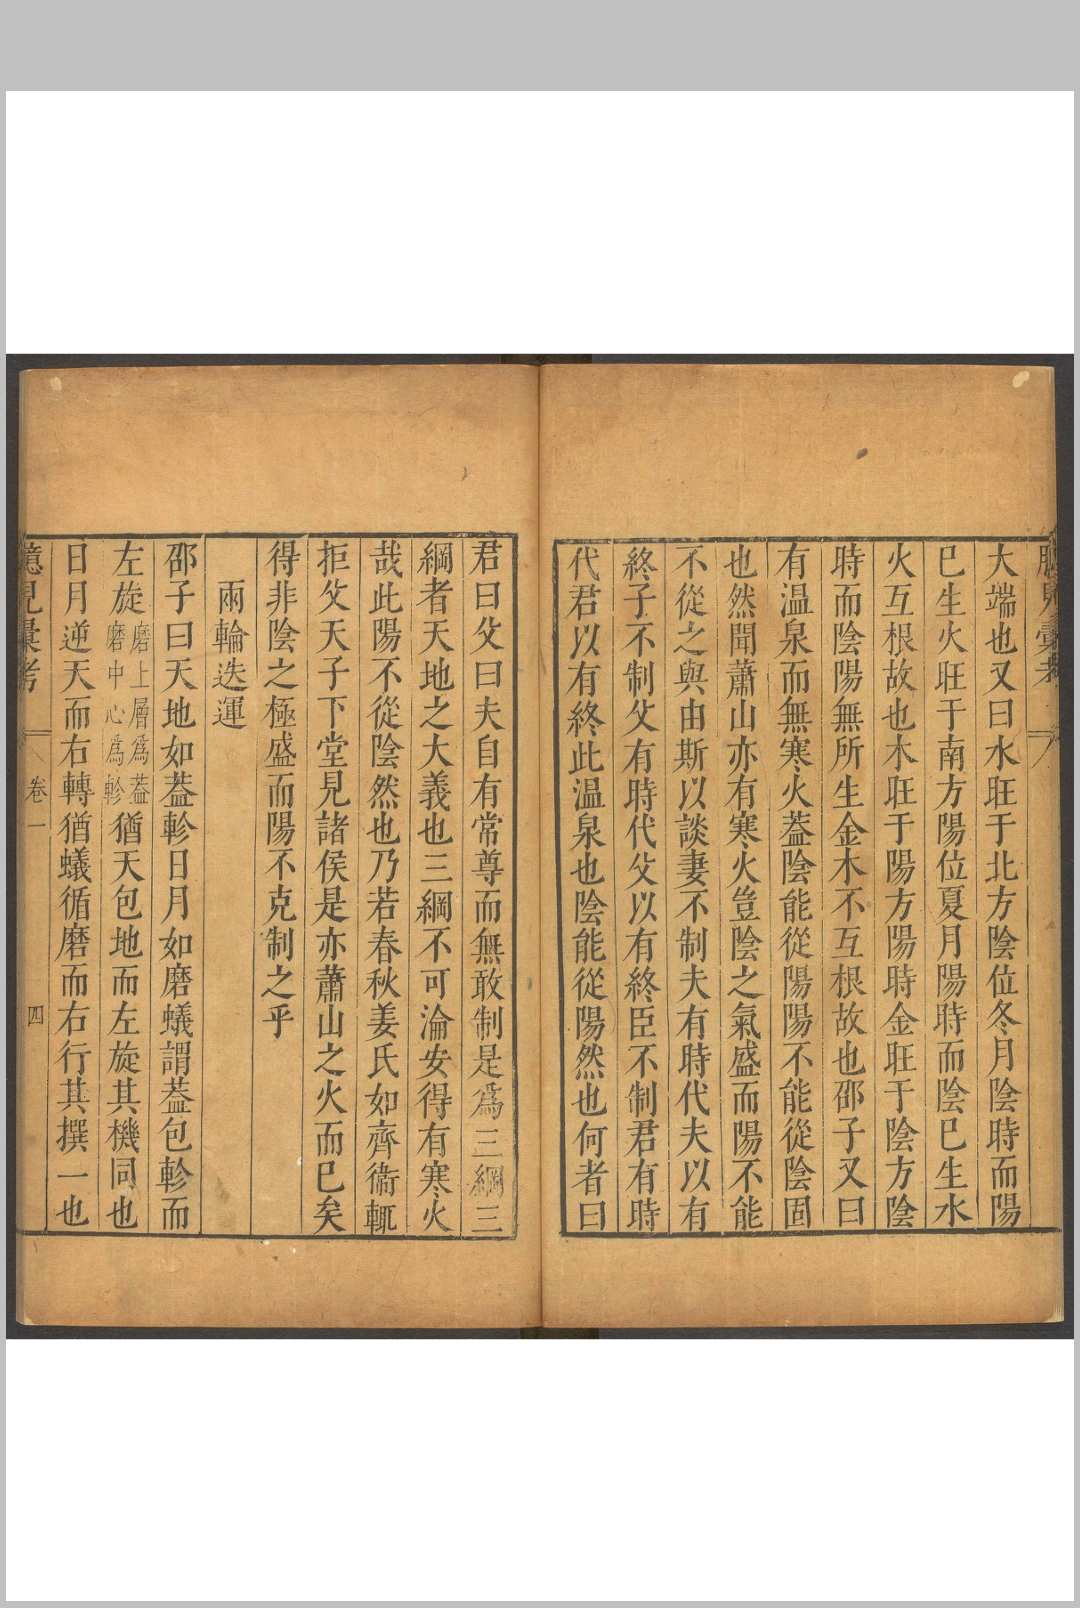 大端也又曰水旺于北方陰位冬月陰時而陽
巳生火旺于南方陽位夏月陽時而陰巳生水
火互根故也木旺于陽方陽時金旺于陰方陰
時而陰陽無所生金木不互根故也邵子又曰
有温泉而無寒火葢陰能從陽陽不能從陰固
也然聞蕭山亦有寒火豈陰之氣盛而陽不能
不從之與由斯以談妻不制夫有時代夫以有
終子不制父有時代父以有終臣不制君有時
代君以有終此温泉也陰能從陽然也何者曰
君曰父曰夫自有常尊而無敢制是爲三綱三
綱者天地之大義也三綱不可淪安得有寒火
哉此陽不從陰然也乃若春秋姜氏如齊衞輒
拒父天子下堂見諸侯是亦蕭山之火而巳矣
得非陰之極盛而陽不克制之乎
兩輪迭運
邵子曰天地如葢軫日月如磨蟻謂葢包軫而
左旋磨上層爲葢磨中心爲軫猶天包地而左旋其機同也
日月逆天而右轉猶蟻循磨而右行其撰一也
臆見彙考
卷一
四